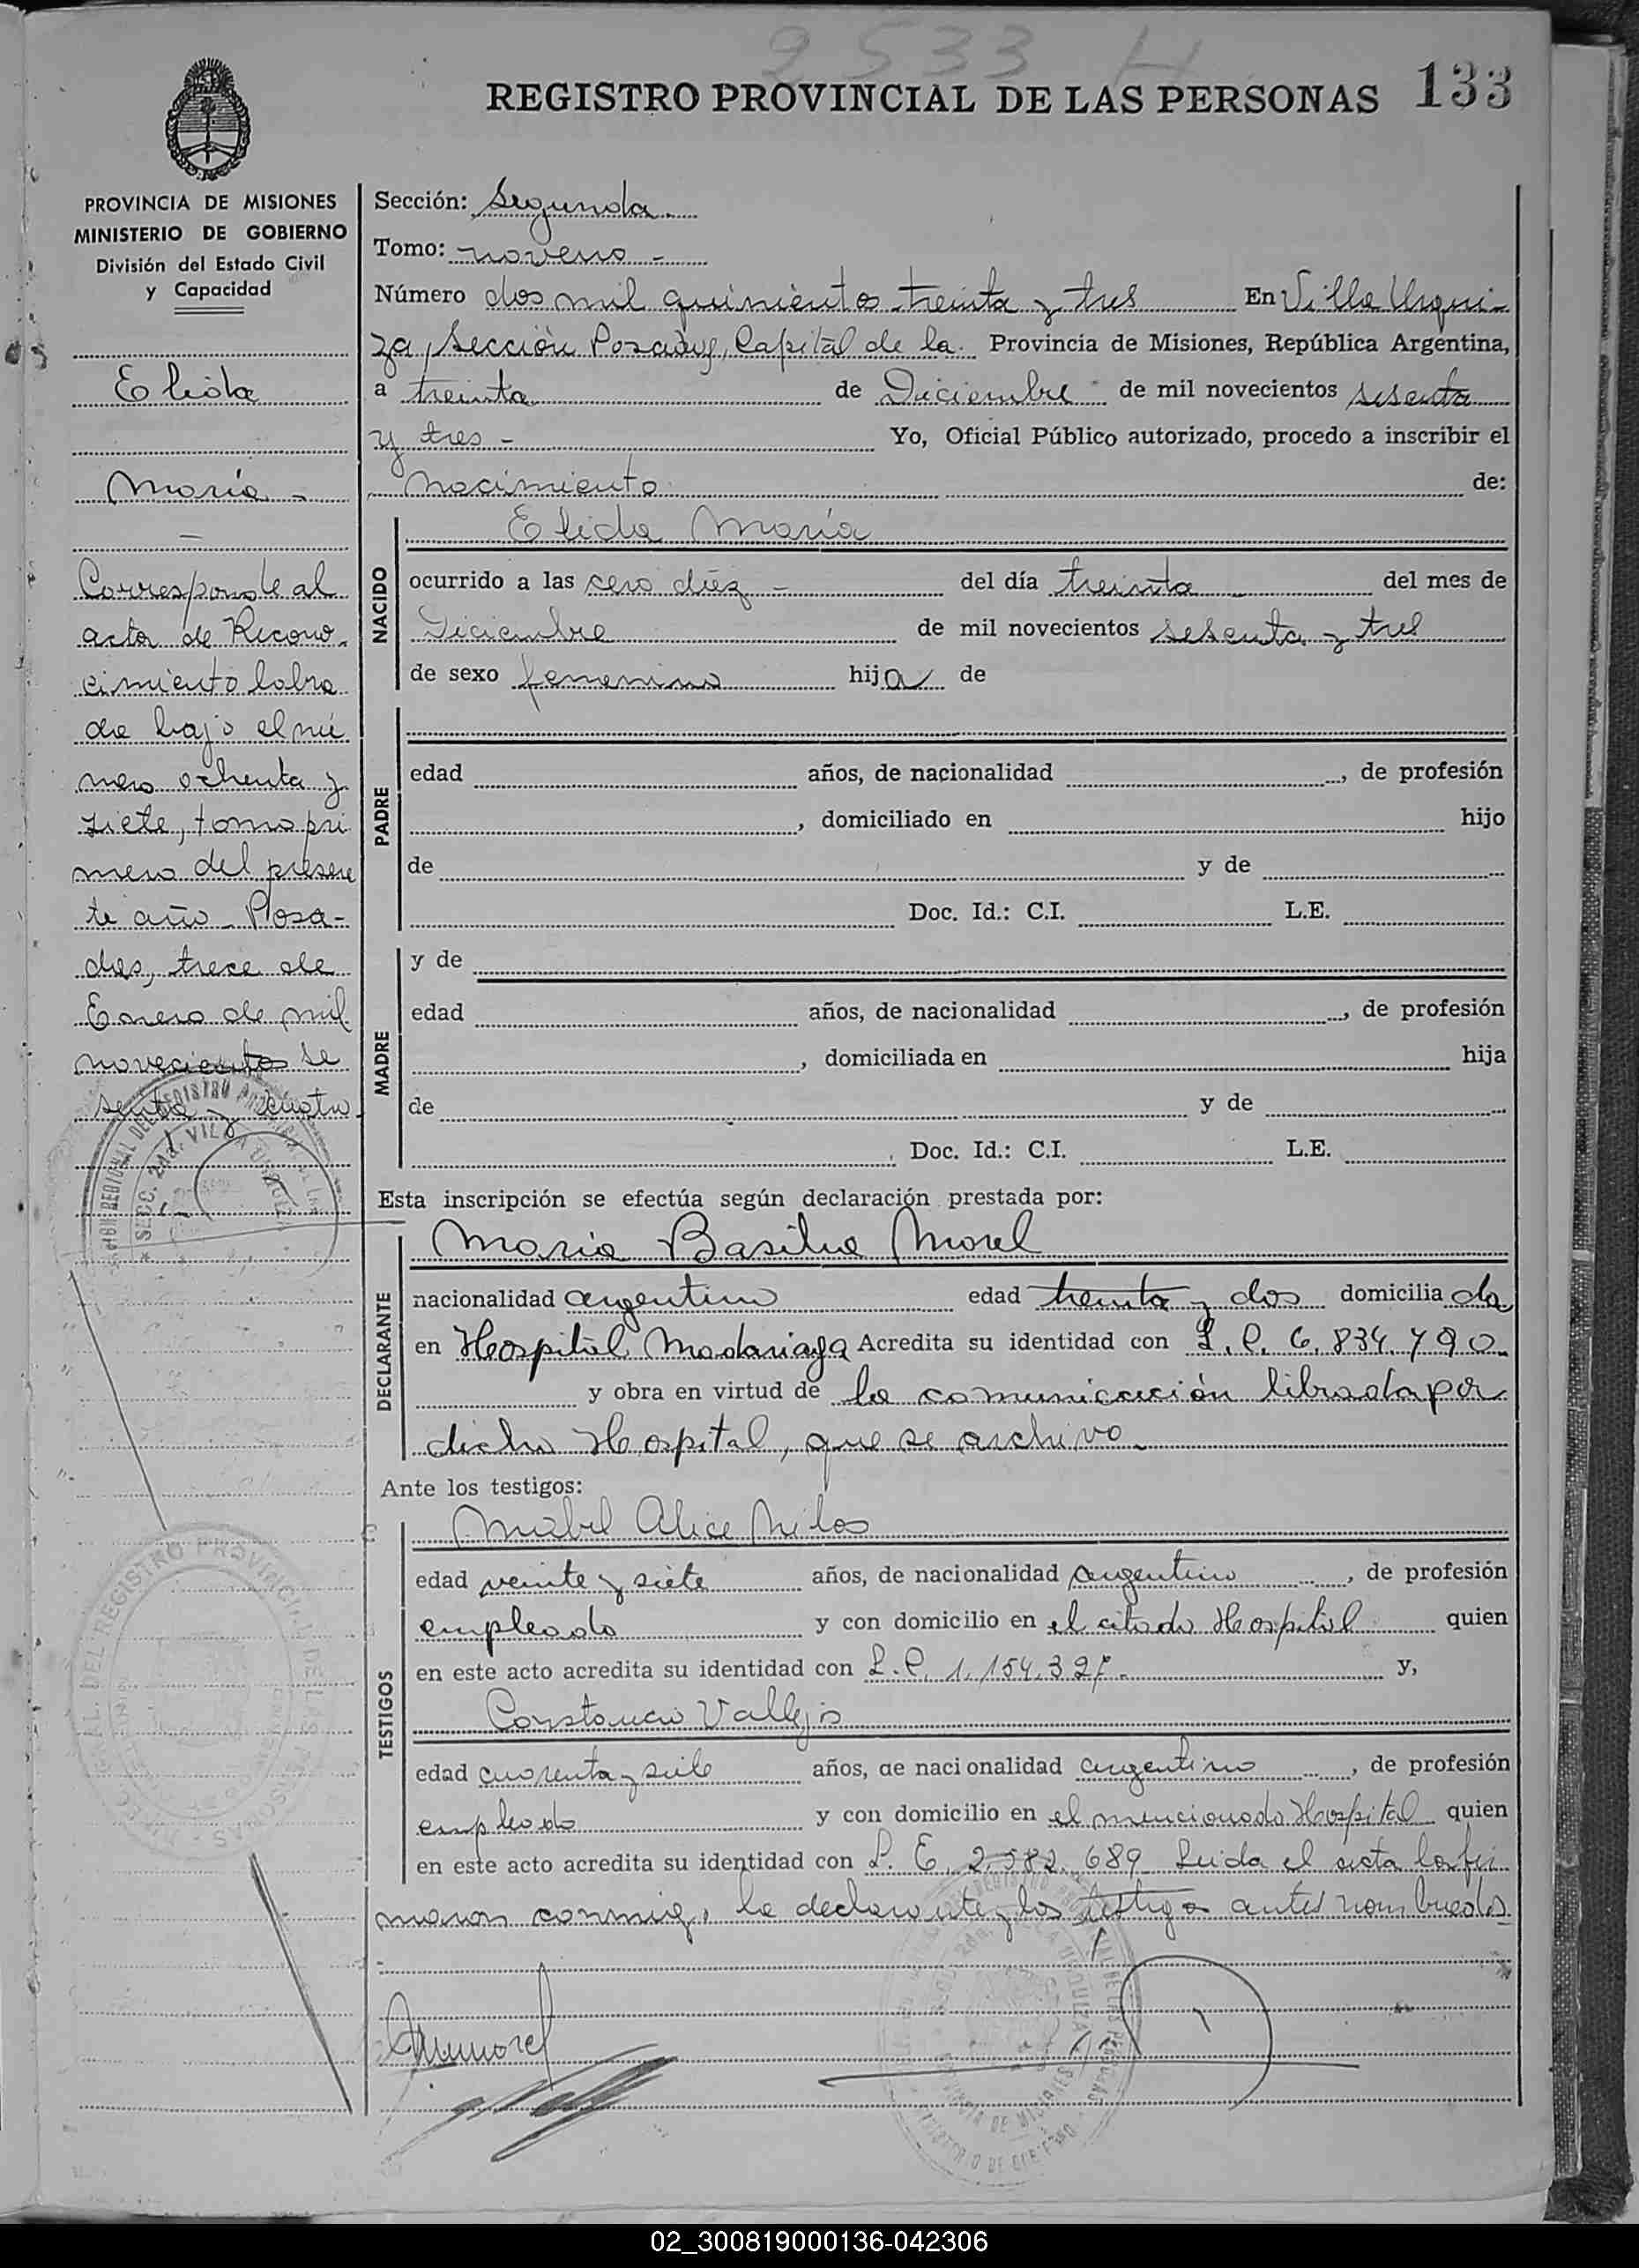 2533 H
REGISTRO PROVINCIAL DE LAS PERSONAS 133
PROVINCIA DE MISIONES
MINISTERIO DE GOBIERNO
División del Estado Civil
y Capacidad
Elida
María -
Corresponde al
acta de Recono-
cimiento labra
da bajo el nú
mero ochenta y
siete, tomo pri
mero del presen
te año - Posa-
das, trece de
Enero de mil
novecientos se
senta y cuatro
Sección: Segunda.
Tomo: - noveno -
Número dos mil quinientos treinta y tres En Villa Urqui-
za, Sección Posadas, Capital de la Provincia de Misiones, República Argentina,
a treinta de Diciembre de mil novecientos sesenta
y tres - Yo, Oficial Público autorizado, procedo a inscribir el
nacimiento de:
NACIDO
Elida María
ocurrido a las cero diez - del día treinta del mes de
Diciembre de mil novecientos sesenta y tres
de sexo femenino hija de
PADRE
edad años, de nacionalidad , de profesión
, domiciliado en hijo
de y de
Doc. Id.: C.I. L.E.
MADRE
y de
edad años, de nacionalidad , de profesión
, domiciliada en hija
de y de
Doc. Id.: C.I. L.E.
Esta inscripción se efectúa según declaración prestada por:
DECLARANTE
Maria Basilia Morel
nacionalidad argentina edad treinta y dos domiciliada
en Hospital Madariaga Acredita su identidad con L.C. 6.834.790
y obra en virtud de la comunicación librada por
dicho Hospital, que se archiva.
Ante los testigos:
TESTIGOS
Mabel Alice
edad veinte y siete años, de nacionalidad argentina , de profesión
empleada y con domicilio en el citado Hospital quien
en este acto acredita su identidad con L.C. 1.154.327.- y,
Constancio Vallejos
edad cuarenta y siete años, de nacionalidad argentino , de profesión
empleado y con domicilio en el mencionado Hospital quien
en este acto acredita su identidad con L.E. 2.582.689 Leida el acta la fir
maron conmigo, la declarante y los testigos antes nombrados
02_300819000136-042306